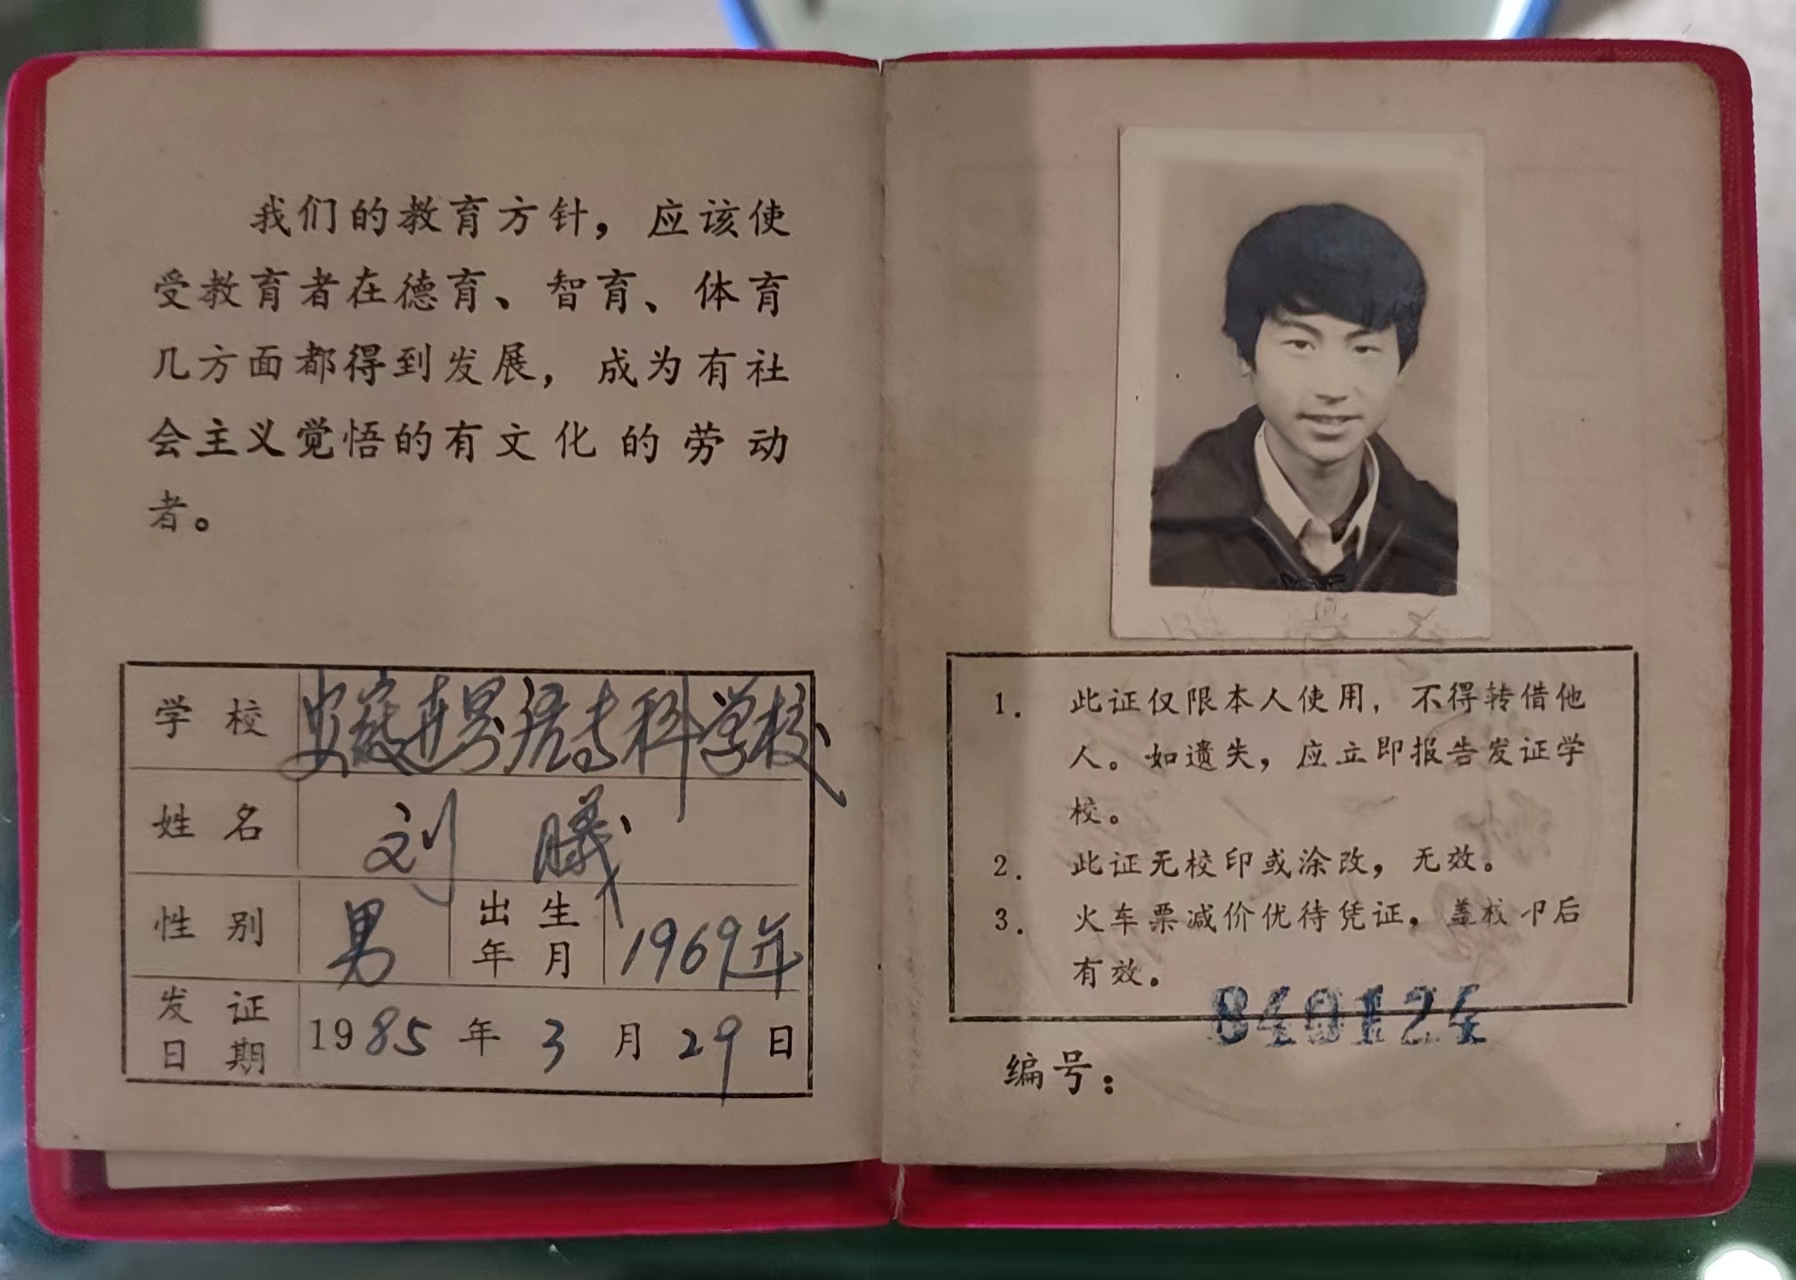 我们的教育方针，应该使
受教育者在德育、智育、体育
几方面都得到发展，成为有社
会主义觉悟的有文化的劳动
者。
学校
科学校
姓名 刘
性别 男 出生年月 1969年
发证日期 1985年3月29日
1. 此证仅限本人使用，不得转借他
人。如遗失，应立即报告发证学
校。
2. 此证无校印或涂改，无效。
3. 火车票减价优待凭证，盖校印后
有效。
编号： 840124